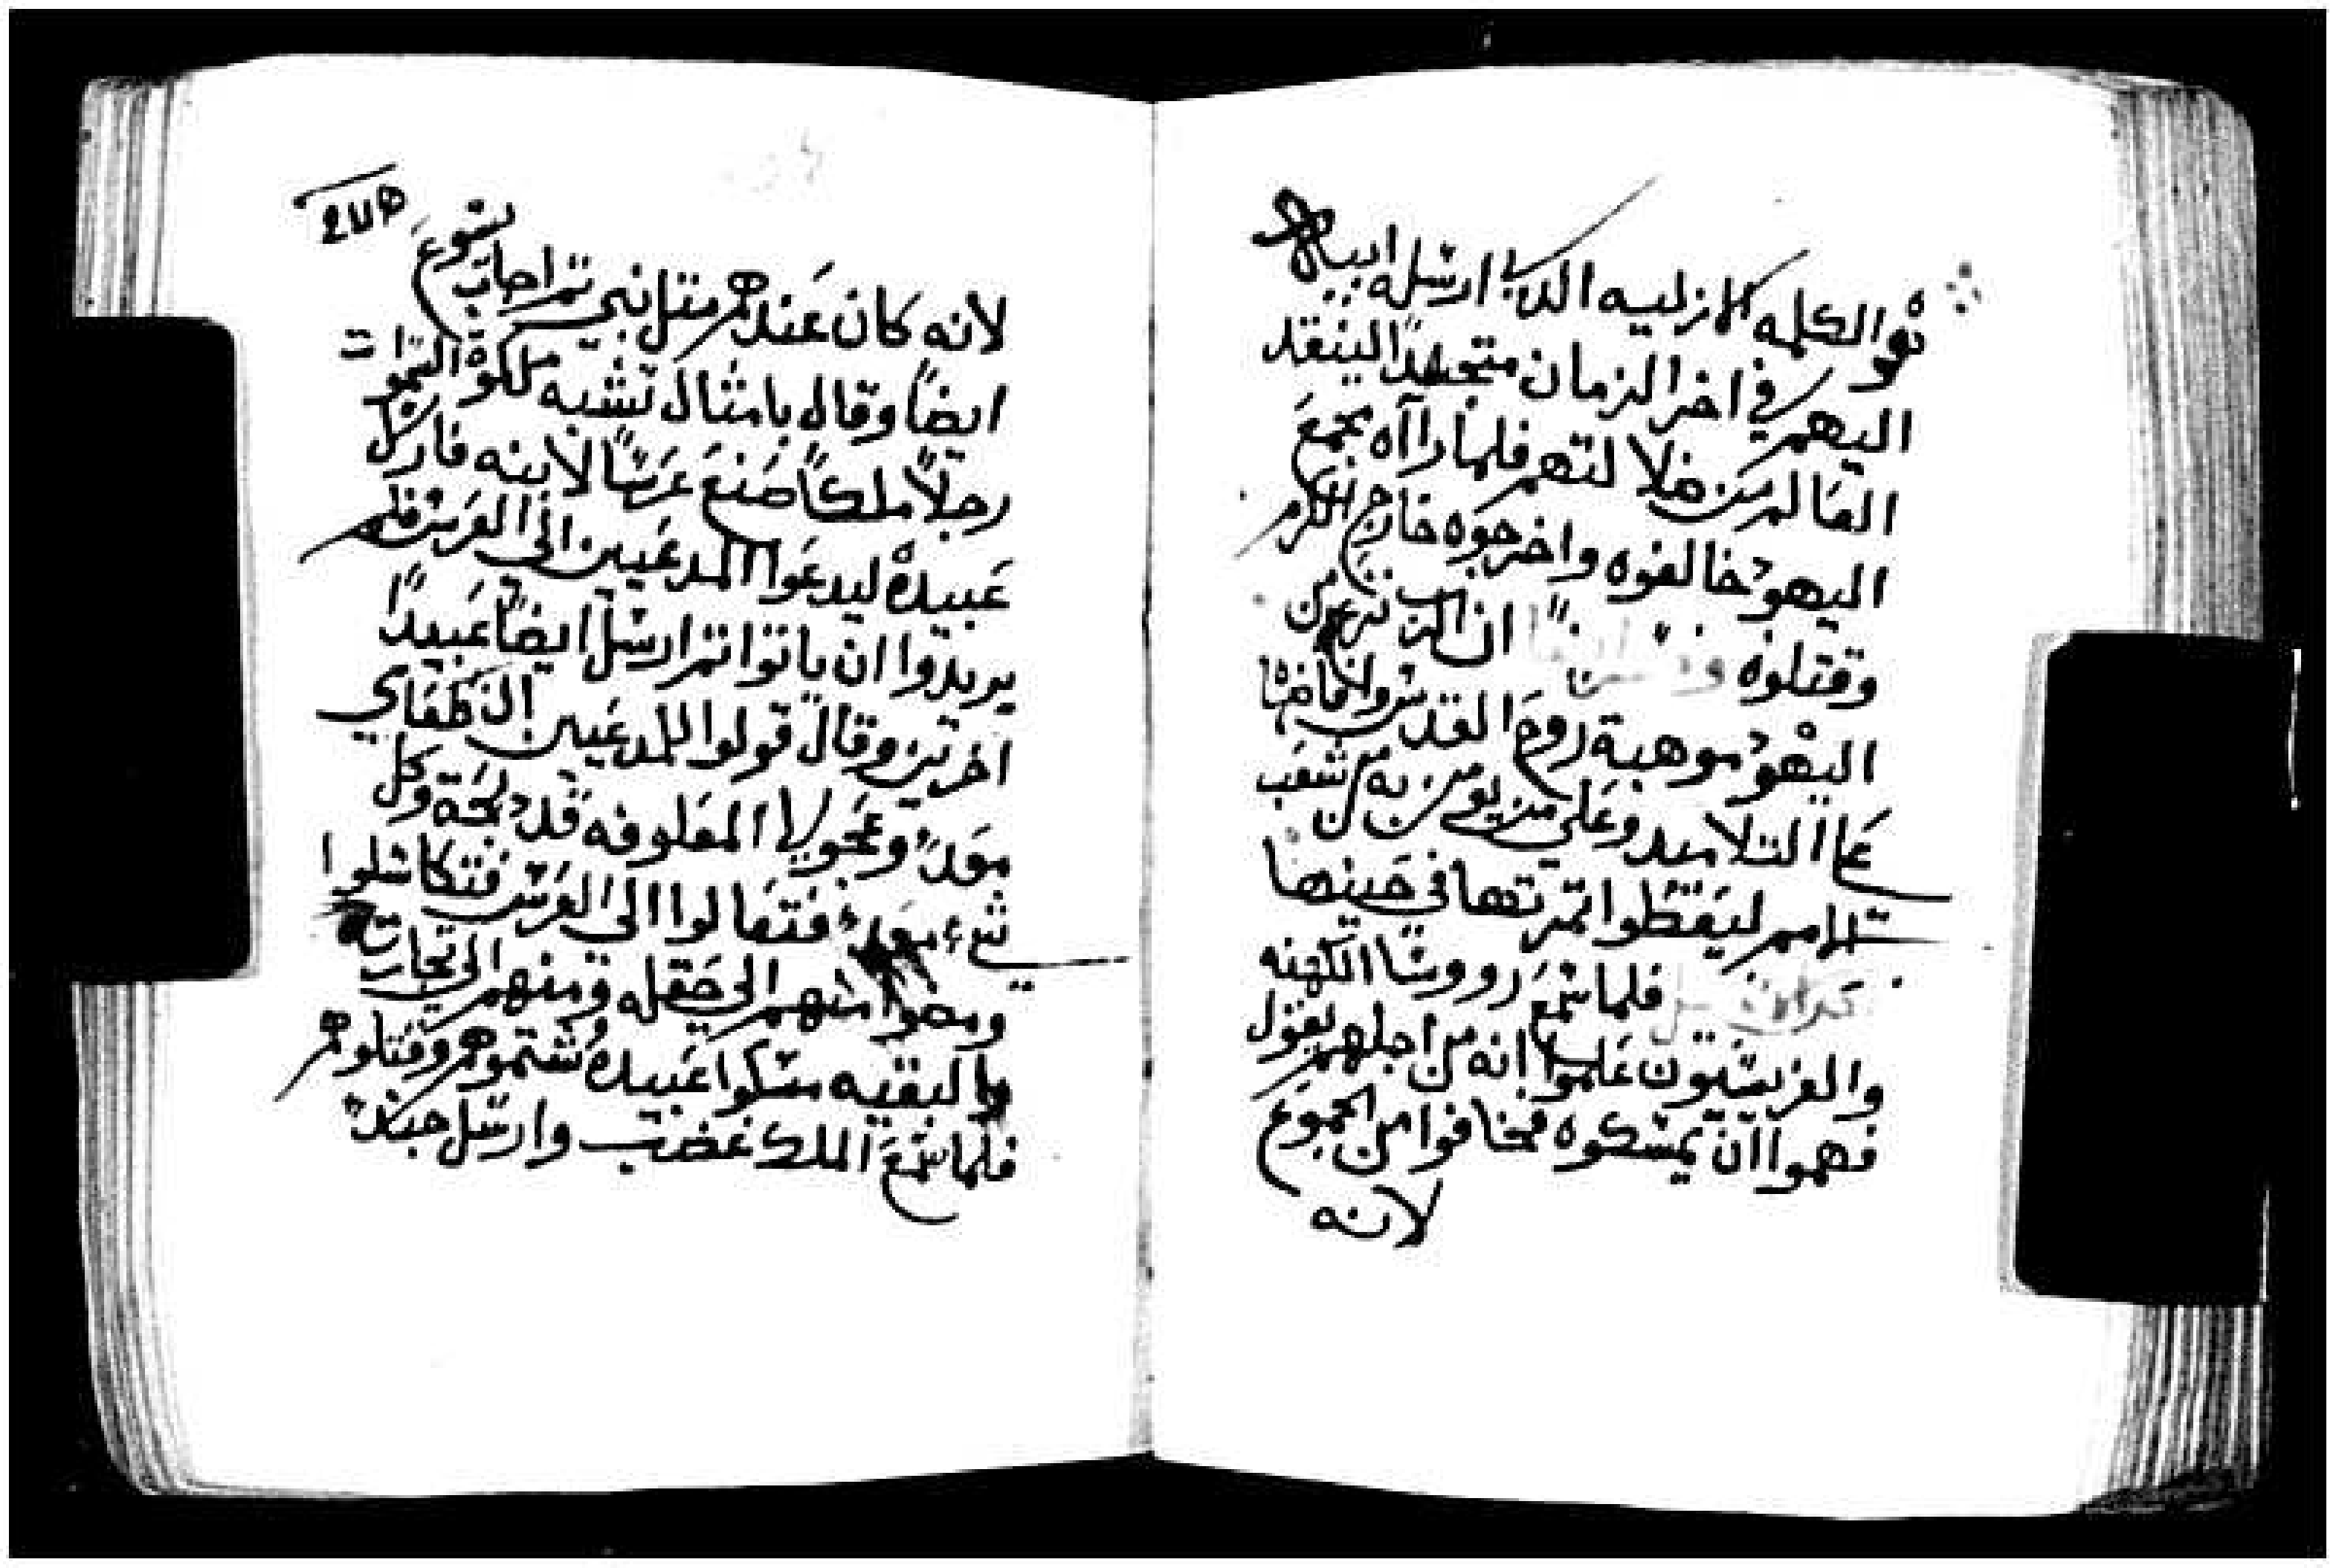 هو الكلمه الازليه الدي ارسله ابيه
اليهم في اخر الزمان متجسداً لينقد
العالم من ضلالتهم فلما رااه مجمع
اليهود خالفوه واخرجوه خارج الكرم
وقتلوه ان الرب نزع من
اليهود موهبة روح القدس وافاضها
على التلاميد وعلى من يومن به من شعب
الامم ليعطوا تمرتها في حينها
فلما سمع رووسا الكهنه
والفريسيون علموا انه من اجلهم يقول
فهموا ان يمسكوه فخافوا من الجموع
لانه
لانه كان عندهم متل نبي تم اجاب يسوع
ايضاً وقال بامثال تشبه ملكوة السموات
رجلاً ملكاً صنع عرساً لابنه فارسل
عبيده ليدعوا المدعيين الى العرس فلم
يريدوا ان ياتوا تم ارسل ايضاً عبيداً
اخرين وقال قولوا للمدعيين ان طعامي
معد وعجولي المعلوفه قد دبحة وكل
شيء معد فتعالوا الى العرس فتكاسلوا
ومضوا منهم الى حقله ومنهم الى تجارته
والبقيه مسكوا عبيده شتموهم وقتلوهم
فلما سمع الملك غضب وارسل جنده